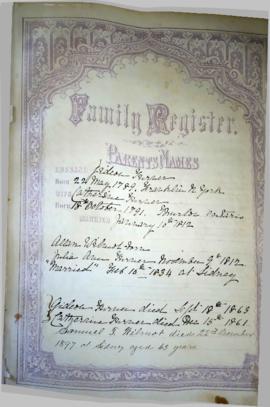 Family Register.
PARENTS NAMES
HUSBAND Gideon Turner
Born 22 May 1789, Franklin N York
WIFE Catharine Turner
Born 18th October 1791.
MARRIED January 10th 1812
Allen Wilmot born
Julia Ann Turner November 9th 1812
"Married" Feb 10th 1834 at Sidney
Gideon Turner died Sept 18th 1863
Catharine Turner died Dec 15th 1861.
Samuel G. Wilmot died 22nd December
1897 at Sidney aged 63 years